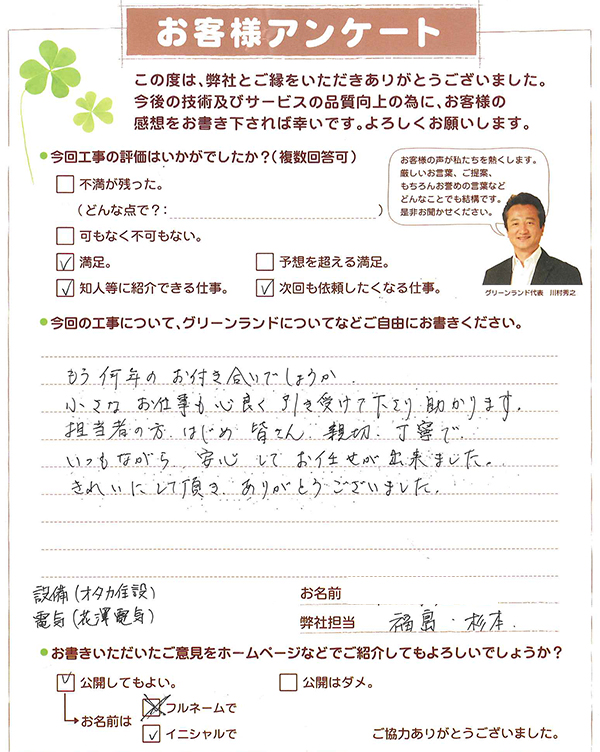 お客様アンケート
この度は、弊社とご縁をいただきありがとうございました。
今後の技術及びサービスの品質向上の為に、お客様の
感想をお書き下されば幸いです。よろしくお願いします。
今回工事の評価はいかがでしたか？（複数回答可）
不満が残った。
（どんな点で？：　）
可もなく不可もない。
満足。
予想を超える満足。
知人等に紹介できる仕事。
次回も依頼したくなる仕事。
お客様の声が私たちを熱くします。
厳しいお言葉、ご提案、
もちろんお誉めの言葉など
どんなことでも結構です。
是非お聞かせください。
グリーンランド代表　川村秀之
今回の工事について、グリーンランドについてなどご自由にお書きください。
もう何年のお付き合いでしょうか.
小さな お仕事も心良く引き受けて下さり助かります。
担当者の方.はじめ 皆さん.親切.丁寧で.
いつもながら 安心してお任せが出来ました。
きれいにして頂き ありがとうございました。
設備（オタカ住設）
電気（花澤電気）
お名前
弊社担当　福島・杉本
お書きいただいたご意見をホームページなどでご紹介してもよろしいでしょうか？
公開してもよい。
公開はダメ。
お名前は
フルネームで
イニシャルで
ご協力ありがとうございました。